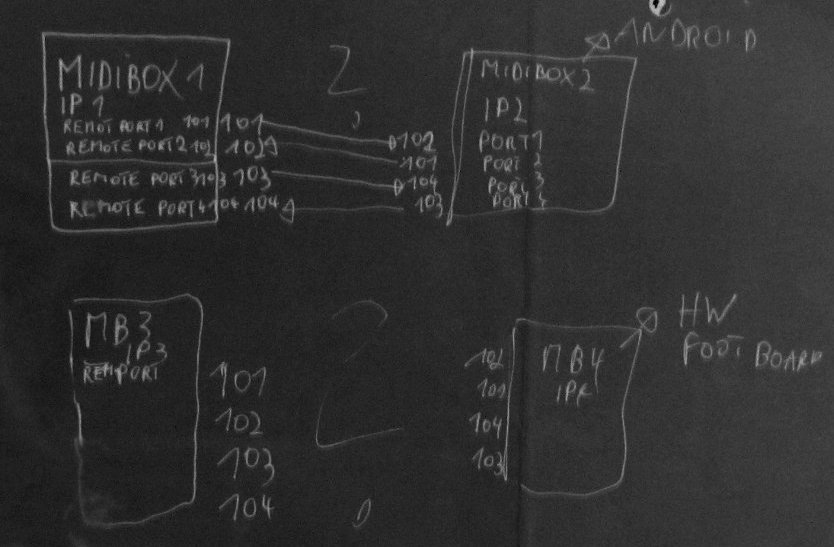 MIDIBOX 1
IP 1
REMOT PORT 1 101 101
REMOTE PORT 2 102 102
REMOTE PORT 3 103 103
REMOTE PORT 4 104 104
?
ANDROID
MIDIBOX 2
IP2
102 PORT 1
101 PORT 2
104 PORT 3
103 PORT 4
MB3
IP3
REM PORT
101
102
103
104
?
HW
FOOT BOARD
MB4
IP4
102
101
104
103